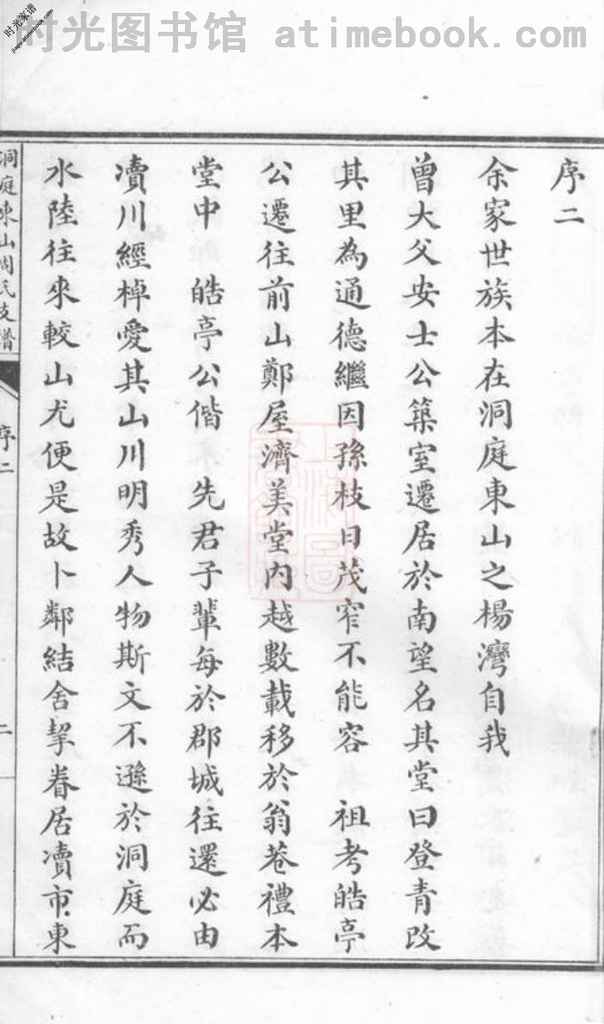 时光图书馆 atimebook.com
时光家谱
序二
余家世族本在洞庭東山之楊灣自我
曾大父安士公築室遷居於南望名其堂曰登青改
其里為通德繼因孫枝日茂窄不能容 祖考皓亭
公遷往前山鄭屋濟美堂內越數載移於翁巷禮本
堂中 皓亭公偕 先君子輩每於郡城往還必由
凟川經棹愛其山川明秀人物斯文不遜於洞庭而
水陸往來較山尤便是故卜鄰結舍挈眷居凟市東
洞庭東山周氏支譜 序二 二